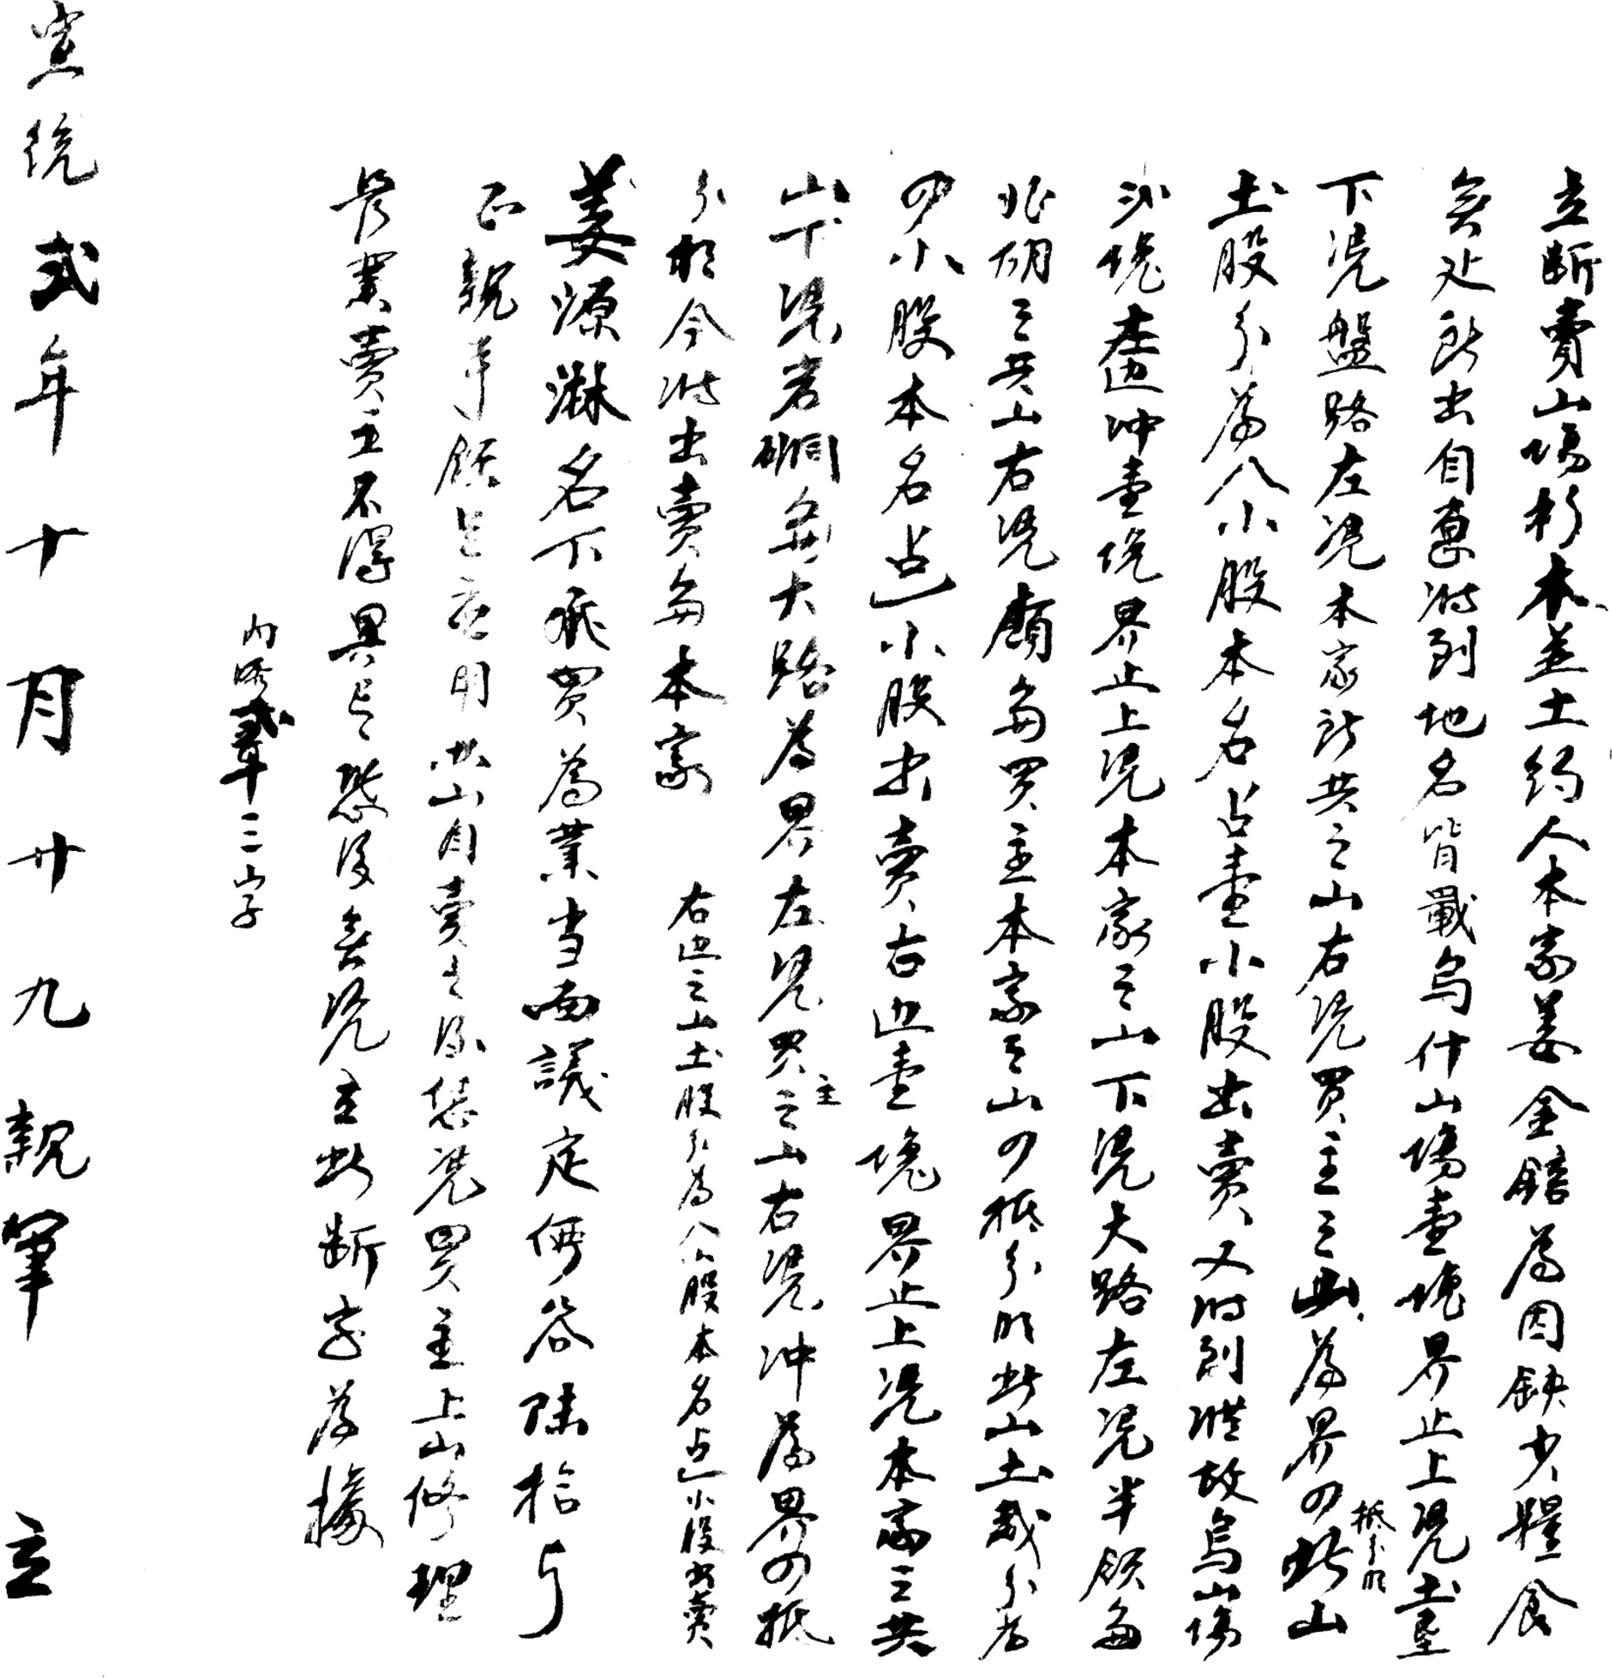 立断賣山塲杉木並土約人本家姜金鐥為因缺少粮食
無処所出自愿將到地名皆戳乌什山塲壹塊界止上凭土垦
下凭盤路左凭本家所共之山右凭買主之山為界四抵分明此山
土股分為八小股本名占壹小股出賣又將到
污塊壹塊界止上凭本家之山下凭大路左凭半嶺與
胡之共山右凭嶺與買主本家之山四抵分明此山土股分為
四小股本名占一小股出賣右边壹塊界止上凭本家之共
山下凭岩硐與大路為界左凭買主之山右凭冲為界四抵
分明今將出賣與本家 右边之山土股分為八小股本名占一小股出賣
姜源淋名下承買為業当面議定價谷陸拾斤
正親手領足應用其山自賣之後恁凭買主上山修理
管業賣主不得異言恐後無凭立此断字為據
内添三字
宣統弍年十月廿九親筆立